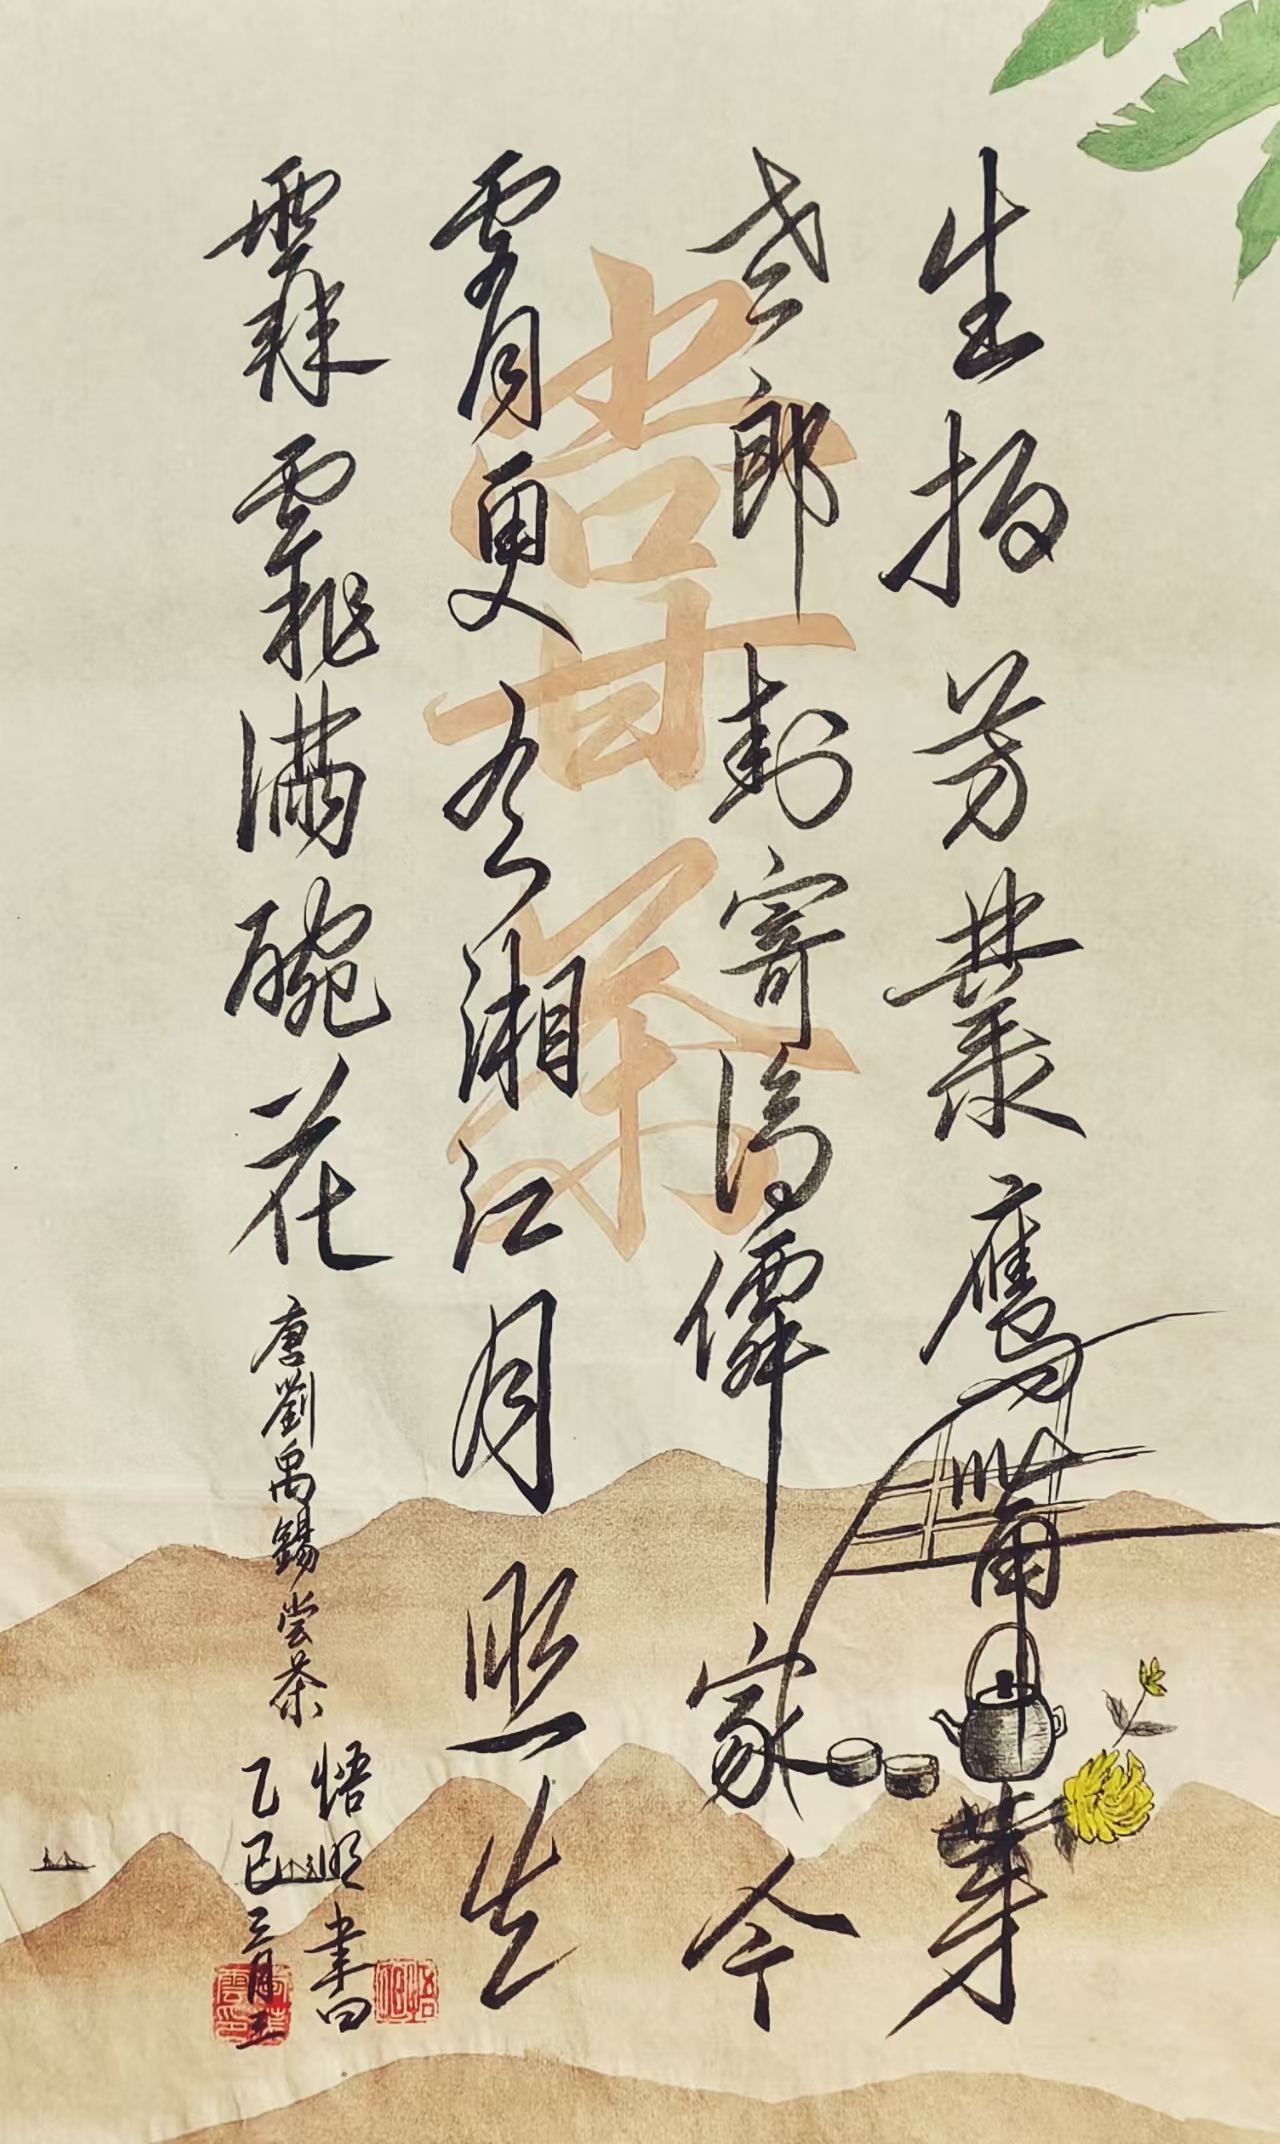 嘗茶
生拍芳叢鷹觜芽
老郎封寄谪僊家今
霄更有湘江月照出
霏霏滿碗花
唐劉禹錫尝茶
悟明書
乙巳三月